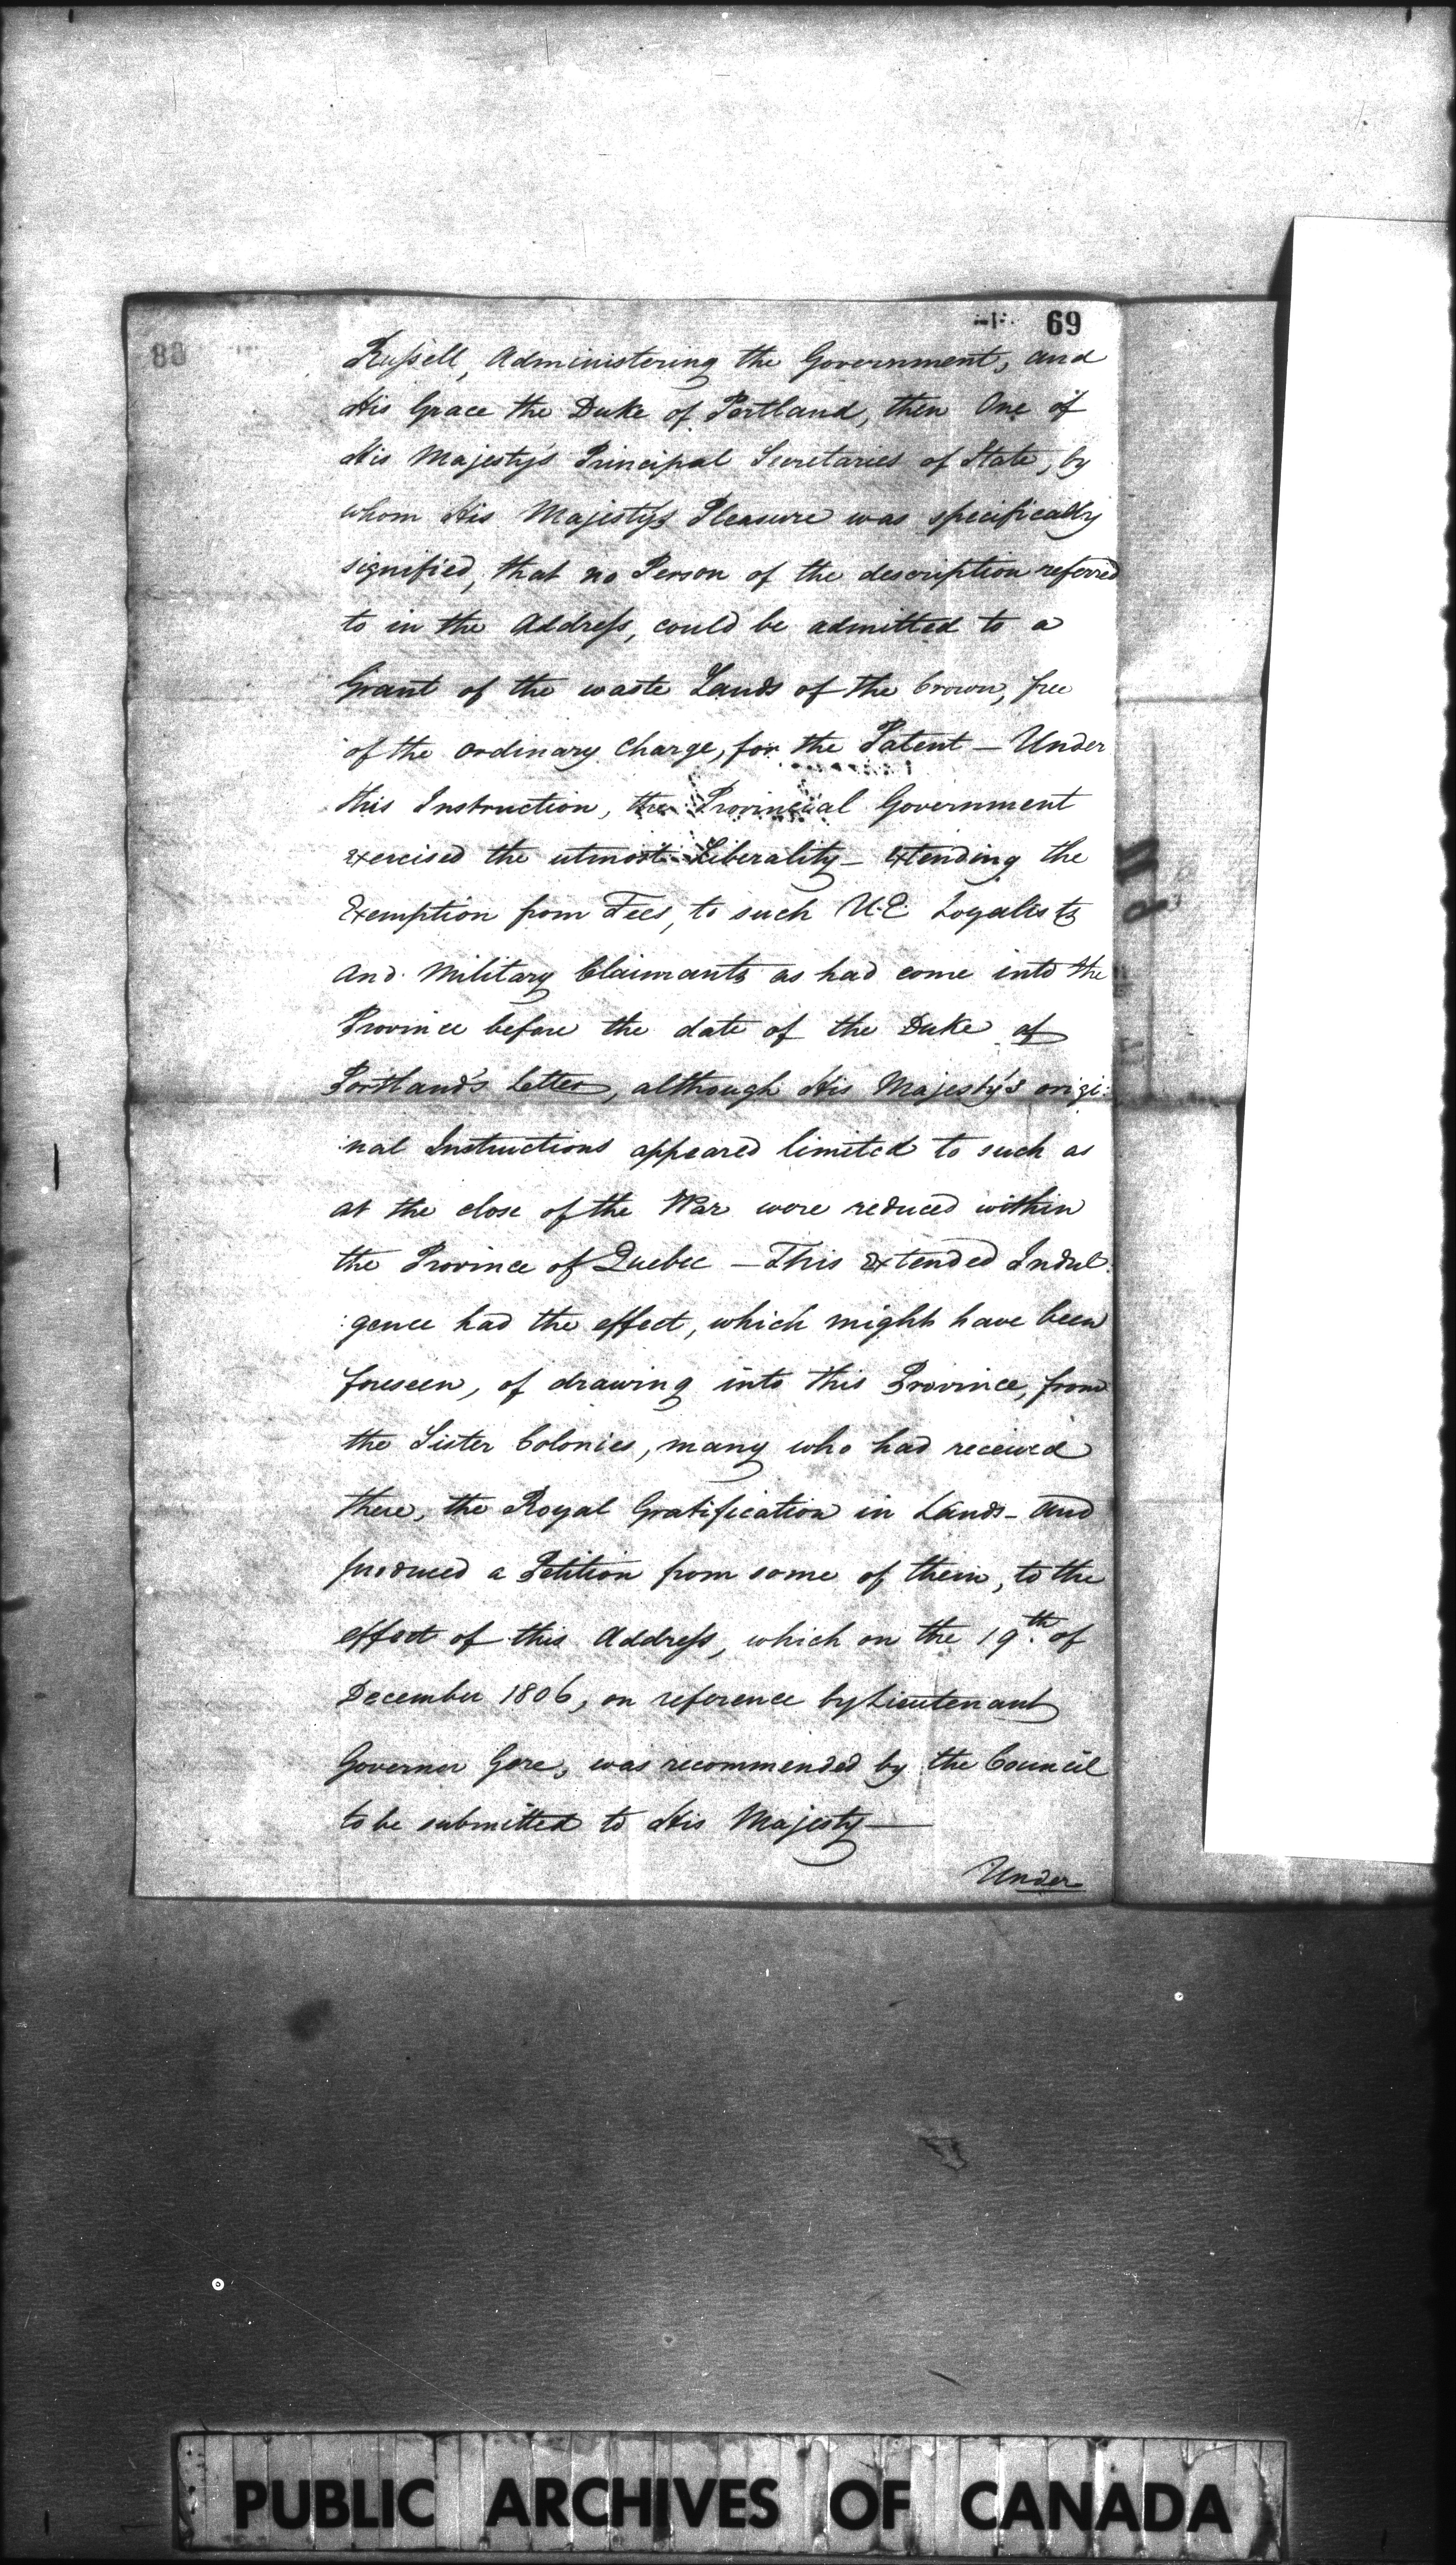 69
Russell, Administering the Government, and
His Grace the Duke of Portland, then One of
His Majesty's Principal Secretaries of State, by
whom His Majesty's Pleasure was specifically
signified, that no Person of the description referred
to in the Address, could be admitted to a
Grant of the waste Lands of the Crown, free
of the ordinary Charge, for the Patent — Under
this Instruction, the Provincial Government
exercised the utmost Liberality — Extending the
Exemption from Fees, to such U.E. Loyalists
and Military Claimants as had come into the
Province before the date of the Duke of
Portland's Letter, although His Majesty's origi:
:nal Instructions appeared limited to such as
at the close of the War were reduced within
the Province of Quebec — This Extended Indul:
:gence had the effect, which might have been
foreseen, of drawing into this Province, from
the Sister Colonies, many who had received
there, the Royal Gratification in Lands — and
produced a Petition from some of them, to the
effect of this Address, which on the 19th. of
December 1806, on reference by Lieutenant
Governor Gore, was recommended by the Council
to be submitted to His Majesty —
Under
PUBLIC ARCHIVES OF CANADA